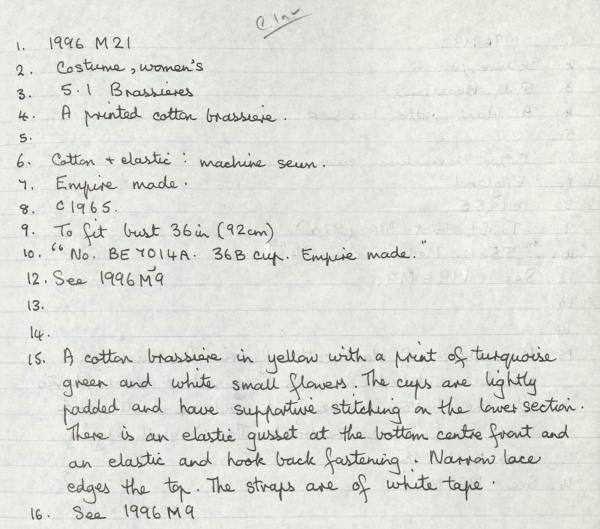 C. Inv
1. 1996 M21
2. Costume, women's
3. 5.1 Brassieres
4. A printed cotton brassiere.
5.
6. Cotton + elastic : machine sewn.
7. Empire made.
8. C1965.
9. To fit bust 36in (92cm)
10. "No. BE 7014A. 36B cup. Empire made."
12. See 1996 M9
13.
14.
15. A cotton brassiere in yellow with a print of turquoise
green and white small flowers. The cups are lightly
padded and have supportive stitching on the lower section.
There is an elastic gusset at the bottom centre front and
an elastic and hook back fastening. Narrow lace
edges the top. The straps are of white tape.
16. See 1996 M9